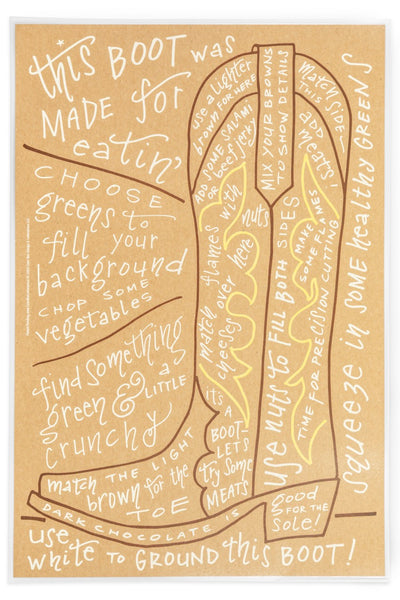 this BOOT was
MADE for
eatin'
CHOOSE
greens to
fill your
background
CHOP SOME
vegetables
find something
green & a
LITTLE
crunchy
use a lighter
brown for HERE
ADD SOME SALAMI
or beef jerky
MIX YOUR BROWNS
TO SHOW DETAILS
match side
THIS
add
meats!
match flames with nuts
cheeses over here
use nuts to fill BOTH SIDES
MAKE
some FLAMES
TIME FOR PRECISION CUTTING
squeeze in some healthy GREENS
It's
A
BOOT-
LET'S
try some
MEATS
match THE LIGHT
brown for the
TOE
DARK CHOCOLATE IS
good
FOR THE
sole!
use
white to GROUND this BOOT!